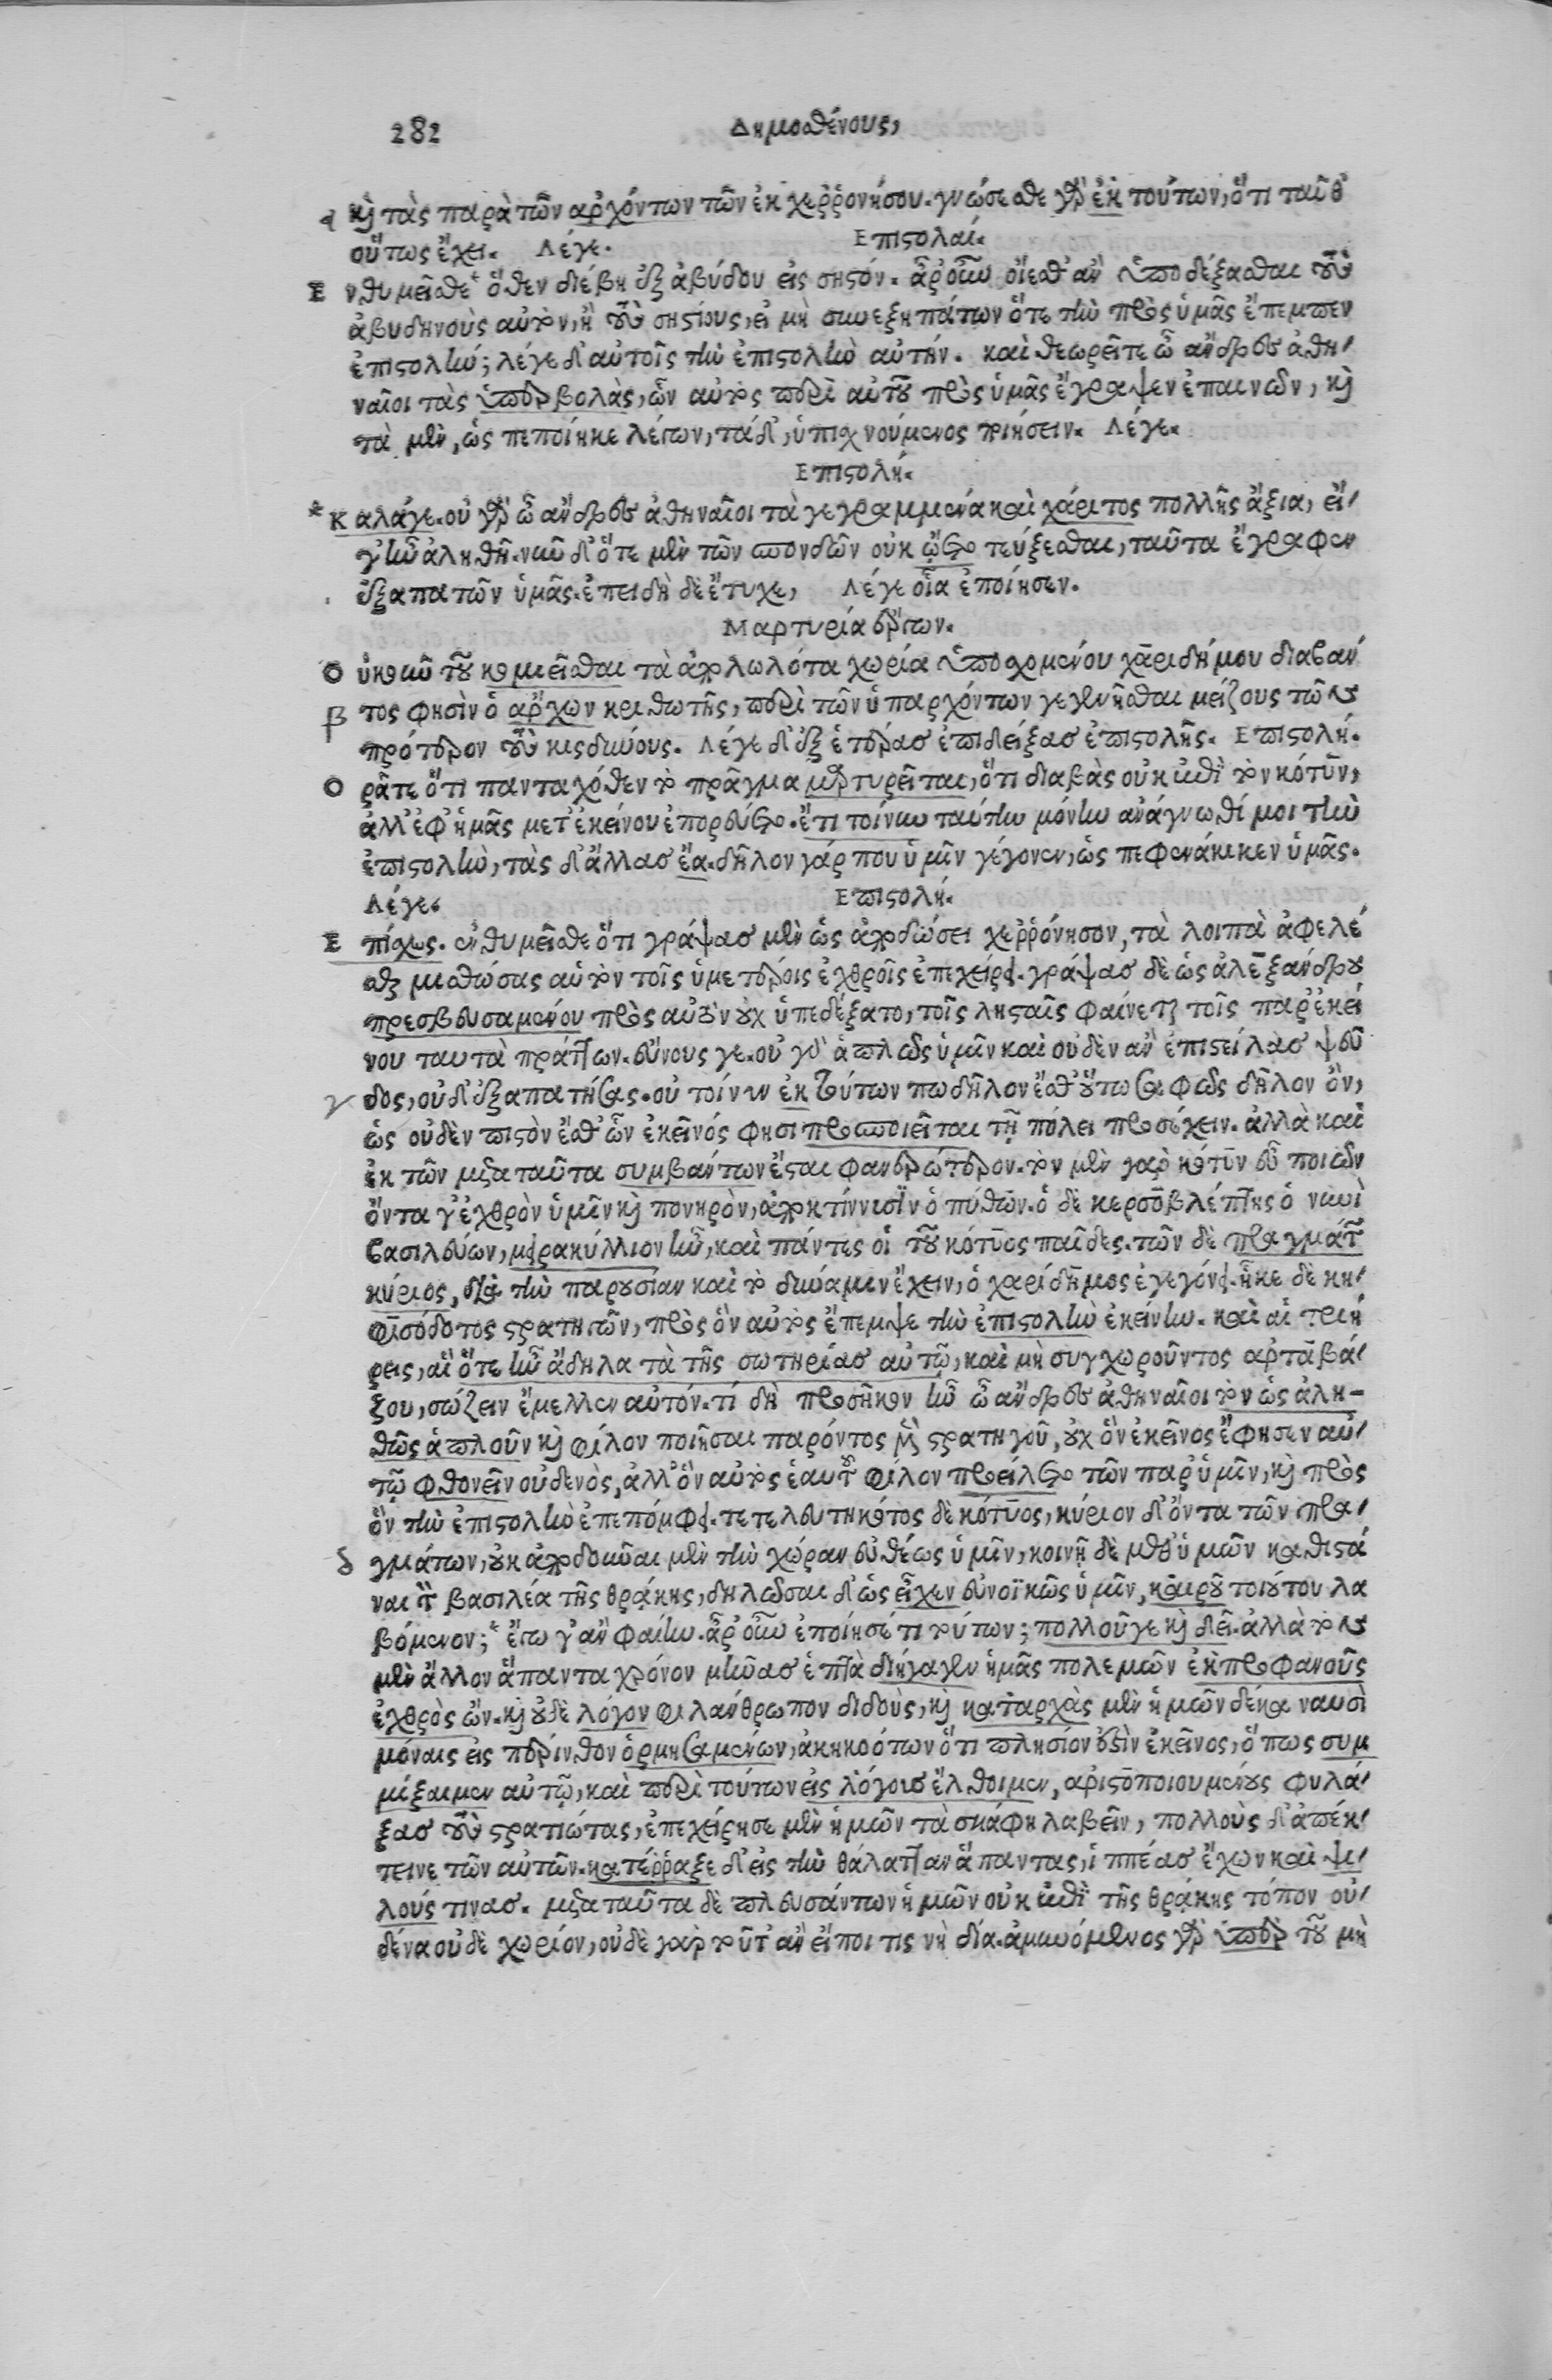 282 Δημοσθένους,
α καὶ τὰς παρὰ τῶν ἀρχόντων τῶν ἐκ χεῤῥονήσου. γνώσεσθε γὰρ ἐκ τούτων, ὅτι ταῦθ᾽
οὕτως ἔχει. Λέγε. Επιστολαί.
Ενθυμεῖσθε* ὅθεν διέβη ἐξ ἀβύδου εἰς σηστόν. ἆρ᾽ οὖν οἴεσθ᾽ ἂν ὑποδέξασθαι τοὺς
ἀβυδηνοὺς αὐτὸν, ἢ τοὺς σηστίους, εἰ μὴ συνεξηπάτων ὅτε τὴν πρὸς ὑμᾶς ἔπεμπεν
ἐπιστολήν; λέγε δ᾽ αὐτοῖς τὴν ἐπιστολὴν αὐτήν. καὶ θεωρεῖτε ὦ ἄνδρες ἀθη-
ναῖοι τὰς ὑπερβολὰς, ὧν αὐτὸς περὶ αὑτοῦ πρὸς ὑμᾶς ἔγραψεν ἐπαινῶν, καὶ
τὰ μὲν, ὡς πεποίηκε λέγων, τὰ δ᾽, ὑπισχνούμενος ποιήσειν. Λέγε.
Επιστολή.
*Καλά γε. οὐ γὰρ ὦ ἄνδρες ἀθηναῖοι τὰ γεγραμμένα καὶ χάριτος πολλῆς ἄξια, εἴ-
γ᾽ ἦν ἀληθῆ. νῦν δ᾽ ὅτε μὲν τῶν σπονδῶν οὐκ ᾤετο τεύξεσθαι, ταῦτα ἔγραφεν
ἐξαπατῶν ὑμᾶς. ἐπειδὴ δὲ ἔτυχε, Λέγε οἷα ἐποίησεν.
Μαρτυρία γραμμάτων.
Οὐκοῦν τοῦ κομιεῖσθαι τὰ ἀπολωλότα χωρία ὑποσχομένου χαριδήμου διαβάν
β τος φησὶν ὁ ἄρχων κριθωτῆς, περὶ τῶν ὑπαρχόντων γεγενῆσθαι μείζους τῶν
πρότερον τοὺς κινδύνους. Λέγε δ᾽ ἐξ ἑτέρας ἐπιδείξας ἐπιστολῆς. Επιστολή.
Ορᾶτε ὅτι πανταχόθεν τὸ πρᾶγμα μαρτυρεῖται, ὅτι διαβὰς οὐκ ἐπὶ τὸν κότυν,
ἀλλ᾽ ἐφ᾽ ἡμᾶς μετ᾽ ἐκείνου ἐπορεύετο. ἔτι τοίνυν ταύτην μόνην ἀνάγνωθί μοι τὴν
ἐπιστολὴν, τὰς δ᾽ ἄλλας ἔα. δῆλον γάρ που ὑμῖν γέγονεν, ὡς πεφενάκικεν ὑμᾶς.
Λέγε. Επιστολή.
Επίσχες. ἐνθυμεῖσθε ὅτι γράψας μὲν ὡς ἀποδώσει χεῤῥόνησον, τὰ λοιπὰ ἀφελέ
σθαι μισθώσας αὑτὸν τοῖς ὑμετέροις ἐχθροῖς ἐπεχείρει. γράψας δὲ ὡς ἀλεξάνδρου
πρεσβευσαμένου πρὸς αὐτὸν οὐχ ὑπεδέξατο, τοῖς λησταῖς φαίνεται τοῖς παρ᾽ ἐκεί
νου ταυτὰ πράττων. εὔνους γε. οὐ γὰρ ἁπλῶς ὑμῖν καὶ οὐδὲν ἂν ἐπιστείλας ψεῦ
γ δος, οὐδ᾽ ἐξαπατήσας. οὐ τοίνυν ἐκ τούτων πω δῆλον ἐσθ᾽ οὕτω σαφῶς δῆλον ὂν,
ὡς οὐδὲν πιστὸν ἐσθ᾽ ὧν ἐκεῖνός φησι προσποιεῖται τῇ πόλει προσέχειν. ἀλλὰ καὶ
ἐκ τῶν μετὰ ταῦτα συμβάντων ἔσται φανερώτερον. τὸν μὲν γὰρ κότυν εὖ ποιῶν
ὄντα γ᾽ ἐχθρὸν ὑμῖν καὶ πονηρὸν, ἀποκτίννυσιν ὁ πύθων. ὁ δὲ κερσοβλέπτης ὁ νυνὶ
βασιλεύων, μειρακύλλιον ἦν, καὶ πάντες οἱ τοῦ κότυος παῖδες. τῶν δὲ πραγμάτων
κύριος, διὰ τὴν παρουσίαν καὶ τὸ δύναμιν ἔχειν, ὁ χαρίδημος ἐγεγόνει. ἧκε δὲ κη-
φισόδοτος στρατηγῶν, πρὸς ὃν αὐτὸς ἔπεμψε τὴν ἐπιστολὴν ἐκείνην. καὶ αἱ τριή
ρεις, αἳ ὅτε ἦν ἄδηλα τὰ τῆς σωτηρίας αὐτῷ, καὶ μὴ συγχωροῦντος ἀρταβά-
ζου, σώζειν ἔμελλον αὐτόν. τί δὴ προσῆκον ἦν ὦ ἄνδρες ἀθηναῖοι τὸν ὡς ἀλη-
θῶς ἁπλοῦν καὶ φίλον ποιῆσαι παρόντος μὲν στρατηγοῦ, οὐχ ὃν ἐκεῖνος ἔφησεν αὑ-
τῷ φθονεῖν οὐδενὸς, ἀλλ᾽ ὃν αὐτὸς ἑαυτοῦ φίλον προείλετο τῶν παρ᾽ ὑμῖν, καὶ πρὸς
ὃν τὴν ἐπιστολὴν ἐπεπόμφει. τετελευτηκότος δὲ κότυος, κύριον δ᾽ ὄντα τῶν πρα-
δ γμάτων, οὐκ ἀποδοῦναι μὲν τὴν χώραν εὐθέως ὑμῖν, κοινῇ δὲ μεθ᾽ ὑμῶν καθιστά
ναι τὸν βασιλέα τῆς θρᾴκης, δηλῶσαι δ᾽ ὡς εἶχεν εὐνοϊκῶς ὑμῖν, καιροῦ τοιούτου λα
βόμενον;* ἔγωγ᾽ ἂν φαίην. ἆρ᾽ οὖν ἐποίησέ τι τούτων; πολλοῦ γε καὶ δεῖ. ἀλλὰ τὸν
μὲν ἄλλον ἅπαντα χρόνον μῆνας ἑπτὰ διήγαγεν ἡμᾶς πολεμῶν ἐκ προφανοῦς
ἐχθρὸς ὤν. καὶ οὐδὲ λόγον φιλάνθρωπον διδοὺς, καὶ καταρχὰς μὲν ἡμῶν δέκα ναυσὶ
μόναις εἰς πέρινθον ὁρμησαμένων, ἀκηκοότων ὅτι πλησίον ἐστὶν ἐκεῖνος, ὅπως συμ
μίξαιμεν αὐτῷ, καὶ περὶ τούτων εἰς λόγους ἔλθοιμεν, ἀριστοποιουμένους φυλά-
ξας τοὺς στρατιώτας, ἐπεχείρησε μὲν ἡμῶν τὰ σκάφη λαβεῖν, πολλοὺς δ᾽ ἀπέκ-
τεινε τῶν αὐτῶν. κατέῤῥαξε δ᾽ εἰς τὴν θάλατταν ἅπαντας, ἱππέας ἔχων καὶ ψι-
λούς τινας. μετὰ ταῦτα δὲ πλευσάντων ἡμῶν οὐκ ἐπὶ τῆς θρᾴκης τόπον οὐ-
δένα οὐδὲ χωρίον, οὐδὲ γὰρ τοῦτ᾽ ἂν εἴποι τις νὴ δία. ἀμυνόμενος γὰρ ὑπὲρ τοῦ μὴ